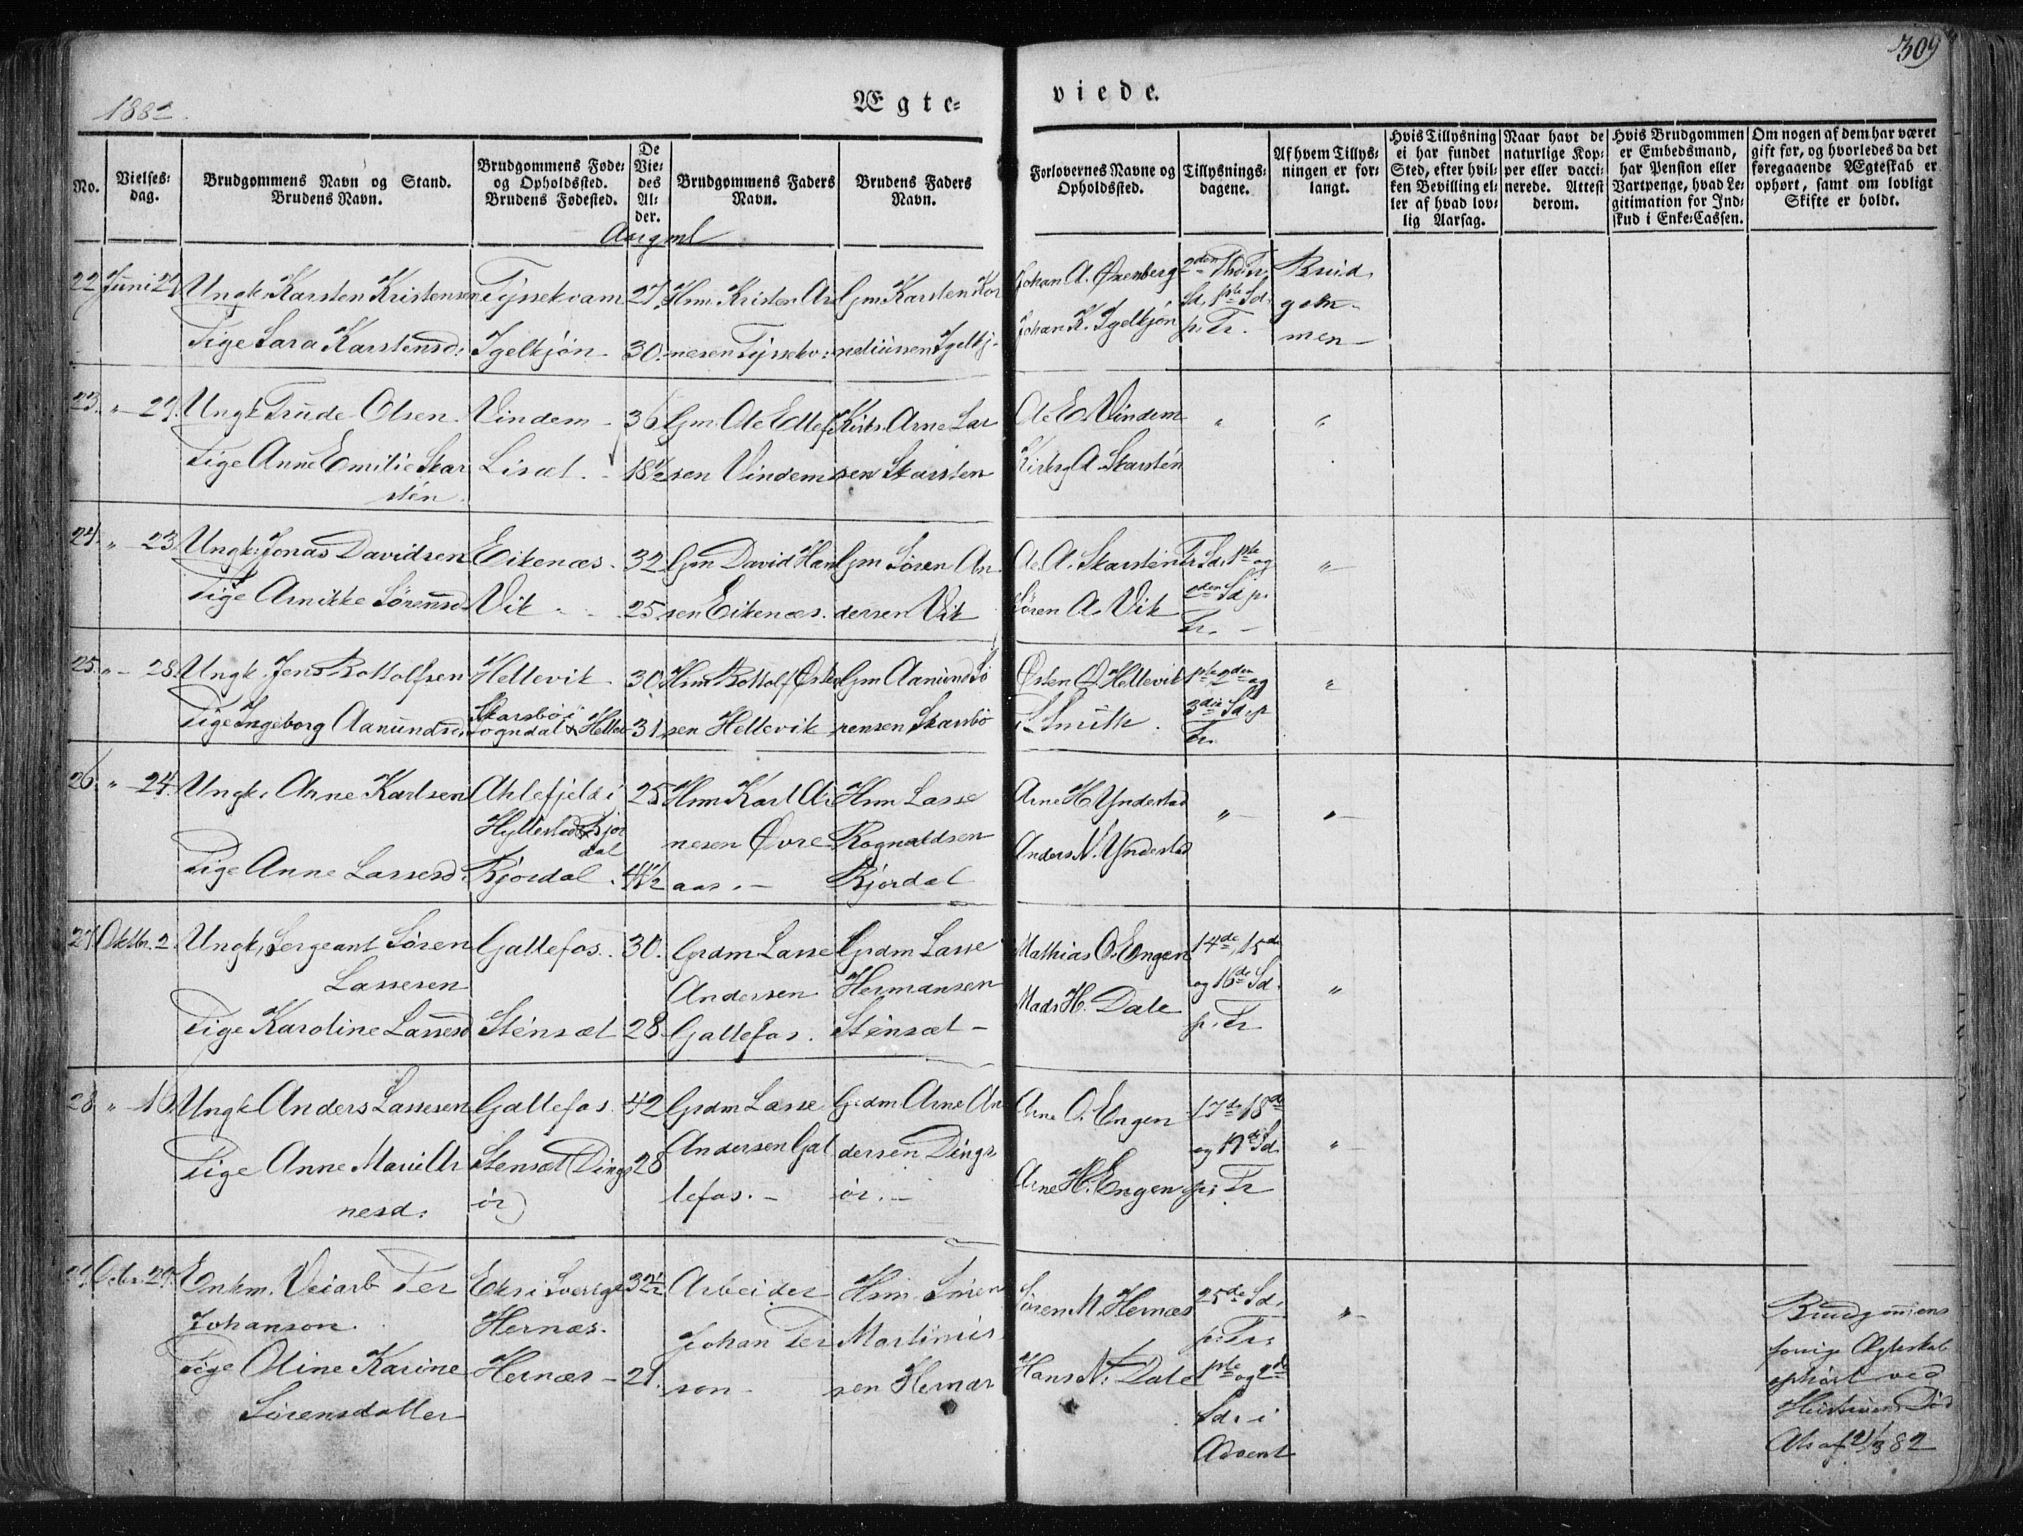 309
1882.
Ægte=
viede.
No.
Vielses=
dag.
Brudgommens Navn og Stand.
Brudens Navn.
Brudgommens Føde=
og Opholdssted.
Brudens Fødested.
De
Vie=
des
Al=
der.
Brudgommens Faders
Navn.
Brudens Faders
Navn.
Forlovernes Navne og
Opholdssted.
Tillysnings=
dagene.
Af hvem Tillys=
ningen er for=
langt.
Hvis Tillysning
ei har fundet
Sted, efter hvil=
ken Bevilling el=
ler af hvad lov=
lig Aarsag.
Naar havt de
naturlige Kop=
per eller vacci=
nerede. Attest
derom.
Hvis Brudgommen
er Embedsmand,
har Pension eller
Vartpenge, hvad Le=
gitimation for Ind=
skud i Enke=Cassen.
Om nogen af dem har været
gift før, og hvorledes da det
foregaaende Ægteskab er
ophørt, samt om lovligt
Skifte er holdt.
22 Juni 27 Ungk. Karsten Kristensen Tyssekvam 27 Hm. Kristen Ar Gm Karsten Kor Johan A. Øxenberg 2den Thr Tr. Brud
Sd, 1ste Sd gom-
Pige Sara Karstensd. Igelkjøn 30. nesen Tyssekv: neliussen Igelkj- Johan K. Igelkjøn p. Tr. men
23. " 27. Ungk. Trude Olsen. Vindem 36 Gm. Ole Ellef Kirks. Arne Lar Ole E. Vindem " "
Pige Anne Emilie Skar Lisæt. 18½ sen Vindem sen Skarsten Kirksg A. Skarsten
sten.
24. " 23 Ungk. Jonas Davidsen Eikenæs. 32 Gm David Han Gm Søren An Ole A. Skarsten Tr. Sd, 1ste og "
Pige Arnikke Sørensd Vik 25 sen Eikenæs. dersen Vik Søren A. Vik 2den Sd p.
Tr.
25. " 28. Ungk. Jens Rottolfsen Hellevik 30. Hm Rottolf Østen Gm Aanund Sø Østen O Hellevik 1ste 2den og "
Pige Ingeborg Aanundsd. Skarsbø i Sogndal & Hellev 31 sen Hellevik rensen Skarsbø Smith. 3die Sd. p
Tr.
26. " 24. Ungk. Anne Karlsen Atlefjeld i 25 Hm Karl Ar Hm Lasse Arne H. Yndestad " "
Hyllestad & Bjor
dal nesen Øvre Rognaldsen Anders N. Yndestad
Pige Anne Lassesd. Bjordal. aas. Bjordal
27. Oktbr. 2. Ungk, Sergeant Søren Gallefos. 30. Grdm Lasse Grdm Lasse Mathias O. Engen 14de, 15de
Lassesen Andersen Hermansen Mads H. Dale og 16de Sd. "
Pige Karoline Lassesd Stensæt 28 Gallefos. Stensæt p. Tr
28 " 16. Ungk Anders Lassesen Gallefos. 42 Grdm Lasse Grdm Arne An Arne O. Engen 17de 18de
Pige Anne Marie Ar Stensæt (Dings 28 Andersen Gal dersen Dings og 19de Sd. "
nesd. ør) lefos. ør. Arne H. Engen p. Tr
29 29. Enkm. Per Eks i Sverige 32½ Arbeider Hm Søren Søren M. Hernæs 25de Sd. "
Johanson. Hernæs. Johan Per Martinus p. Tr.
Pige Oline Karine Hernæs 21. son sen Hernæs Hans N. Dale 1ste og 2de
Sørensdatter Sd. i
Advent
Brudgommens
forrige Ægteskab
ophørt ved
Hustruens Død
21/3 82